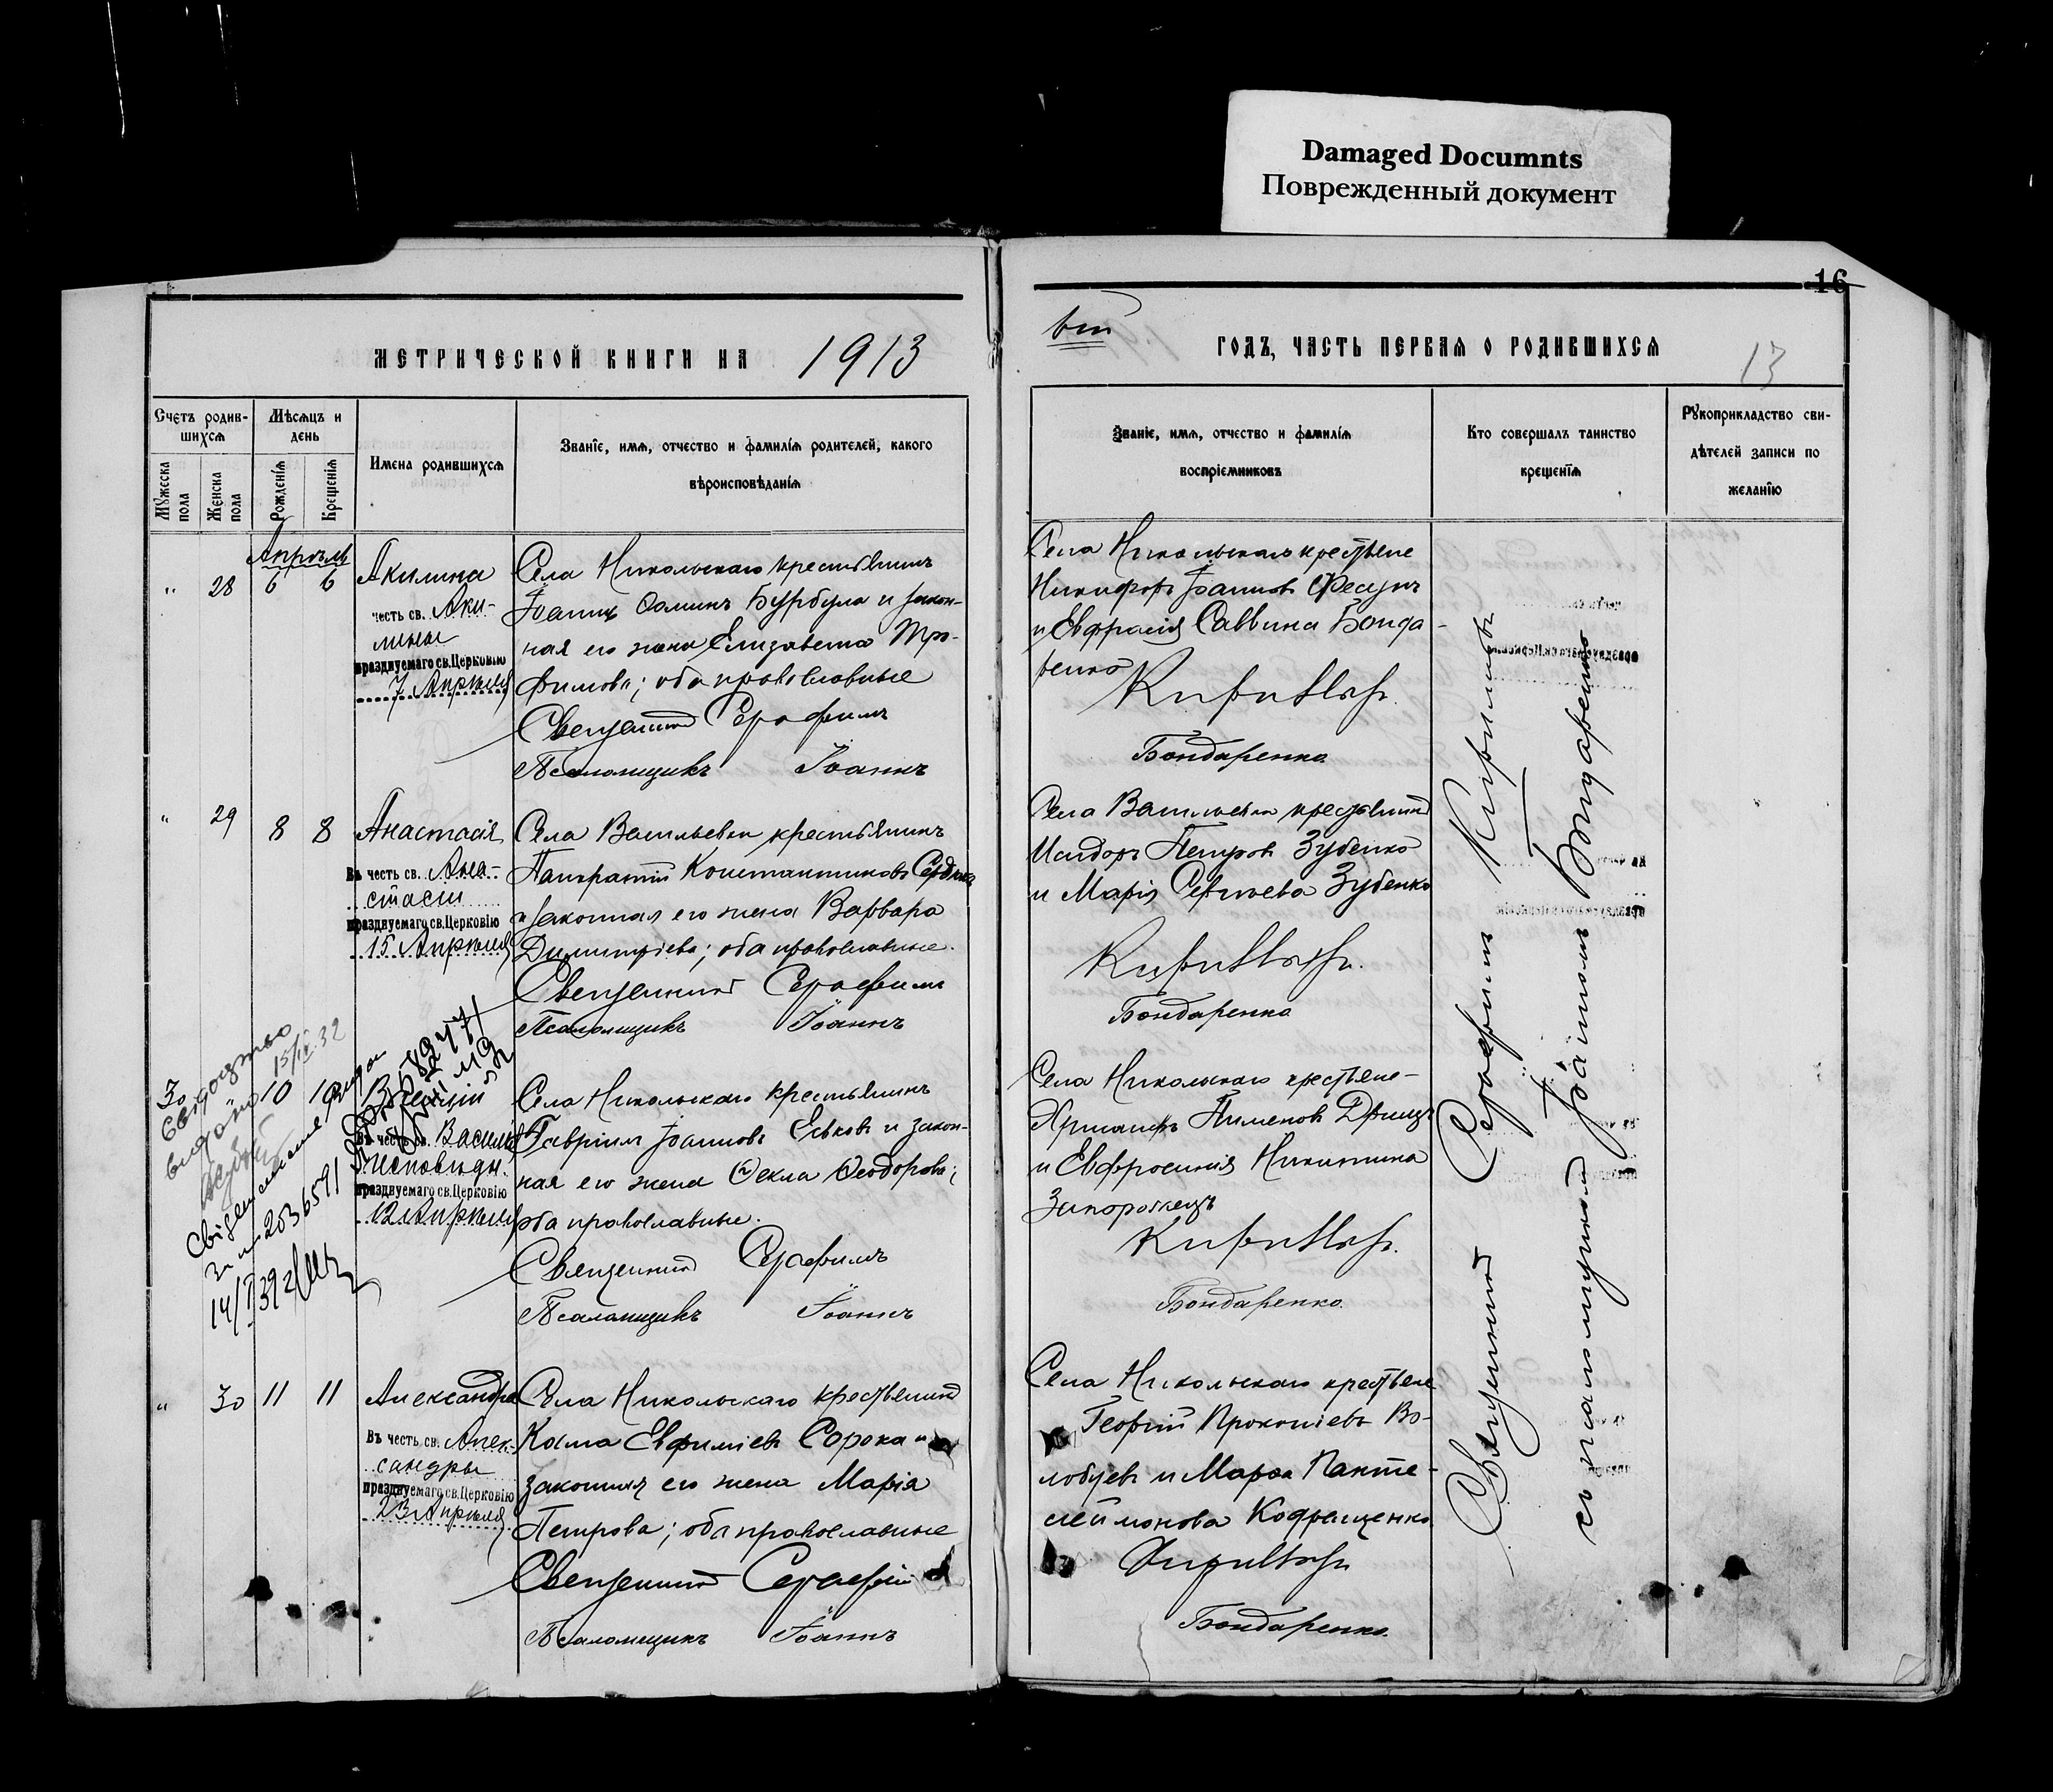 Damaged Documnts
Поврежденный документ
16
МЕТРИЧЕСКОЙ КНИГИ НА 1913
Счетъ родив-
шихся
Мѣсяцъ и
день
Мужеска
пола
Женска
пола
Рожденія
Крещенія
Имена родившихся
Званіе, имя, отчество и фамилія родителей, какого
вѣроисповѣданія
Апрѣль
" 28 6 6
Акилина
честь св. Аки-
лины
празднуемаго св. Церковію
7 Апрѣля
Села Никольскаго крестьянинъ
Іоаннъ Ѳоминъ Бурбула и закон-
ная его жена Елизавета Тро-
фимова; оба православные
Священникъ Серафимъ
Псаломщикъ Іоаннъ
" 29 8 8
Анастасія
Въ честь св. Ана-
стасіи
празднуемаго св. Церковію
15 Апрѣля
Села Васильевки крестьянинъ
Панкратій Константиновъ
и законная его жена Варвара
Димитріева; оба православные.
Священникъ Серафимъ
Псаломщикъ Іоаннъ
30 10 10
Василій
Въ честь св. Василія
Исповѣдн.
празднуемаго св. Церковію
12 Апрѣля
Села Никольскаго крестьянинъ
Гавріилъ Іоанновъ Еськовъ и закон-
ная его жена Ѳекла Ѳеодорова;
оба православные.
Священникъ Серафимъ
Псаломщикъ Іоаннъ
15/IV.32
2036591
" 30 11 11
Александра
Въ честь св. Алек-
сандры
празднуемаго св. Церковію
23 Апрѣля
Села Никольскаго крестьянинъ
Косма Евфиміевъ Сорока и
законная его жена Марія
Петрова; оба православные
Священникъ Серафим
Псаломщикъ Іоаннъ
вт
ГОДЪ, ЧАСТЬ ПЕРВАЯ О РОДИВШИХСЯ
13
Званіе, имя, отчество и фамилія
воспріемниковъ
Кто совершалъ таинство
крещенія
Рукоприкладство сви-
дѣтелей записи по
желанію
Села Никольскаго крестьяне
Никифоръ Іоанновъ Фесунъ
и Евфрасія Саввина Бонда-
ренко
Бондаренко
Села Васильевки крестьянинъ
Исидоръ Петровъ Зубенко
и Марія Сергѣева Зубенко
Бондаренко
Села Никольскаго крестьяне-
Пименовъ
и Евфросинія Никитина
Запорожецъ
Бондаренко.
Села Никольскаго крестьяне
Георгій Прокопіевъ Во-
лобуевъ и Марѳа Панте-
леимонова Кофищенко
Бондаренко.
Священникъ Серафимъ Кириловъ
съ псаломщикомъ Іоанномъ Бондаренко